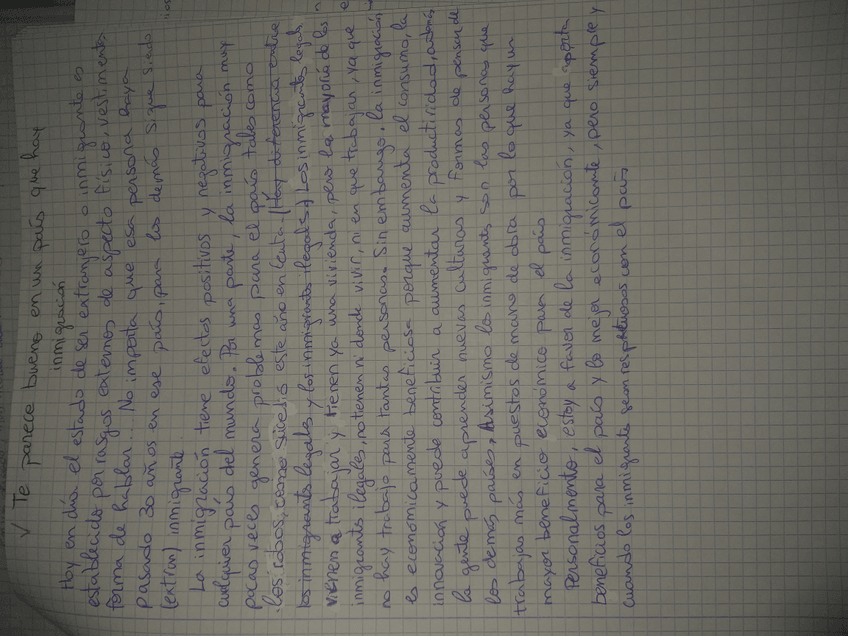 ✓ Te parece bueno en un país que hay
inmigración
Hoy en día el estado de ser extranjero o inmigrante es
establecido por rasgos externos de aspecto físico, vestimenta,
forma de hablar... No importa que esa persona haya
pasado 30 años en ese país, para los demás sigue siendo
(extran) inmigrante
La inmigración tiene efectos positivos y negativos para
cualquier país del mundo. Por una parte, la inmigración muy
pocas veces genera problemas para el país tales como
los robos, como sucedió este año en Ceuta. (Hay diferencia entre
los inmigrantes legales y los inmigrante ilegales) Los inmigrantes legales
vienen a trabajar y tienen ya una vivienda, pero la mayoría de los
inmigrante ilegales, no tienen ni donde vivir, ni en que trabajar, ya que
no hay trabajo para tantas personas. Sin embargo, la inmigración
es económicamente beneficiosa porque aumenta el consumo, la
innovación y puede contribuir a aumentar la productividad, además
la gente puede aprender nuevas culturas y formas de pensar de
los demás países. Asimismo los inmigrantes son las personas que
trabajas más en puestos de mano de obra por lo que hay un
mayor beneficio economico para el país
Personalmente, estoy a favor de la inmigración, ya que aporta
beneficios para el país y lo mejor económicamente, pero siempre y
cuando los inmigrante sean respetuosos con el país